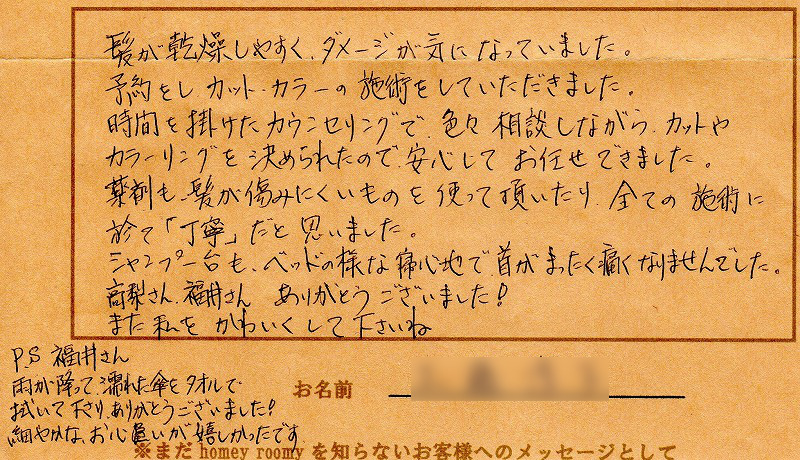 髪が乾燥しやすく、ダメージが気になっていました。
予約をし、カット・カラーの施術をしていただきました。
時間を掛けたカウンセリングで、色々相談しながら、カットや
カラーリングを決められたので、安心してお任せできました。
薬剤も、髪が傷みにくいものを使って頂いたり、全ての施術に
於て「丁寧」だと思いました。
シャンプー台も、ベッドの様な寝心地で、首がまったく痛くなりませんでした。
高梨さん、福井さん ありがとうございました!
また私をかわいくして下さいね
P.S 福井さん
雨が降って、濡れた傘をタオルで
拭いて下さり、ありがとうございました!
細やかな、お心遣いが嬉しかったです
お名前
※まだ homey roomy を知らないお客様へのメッセージとして